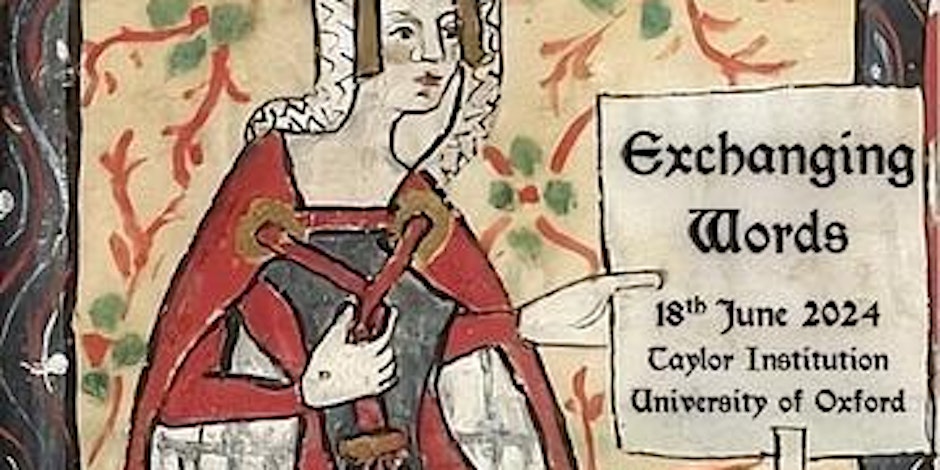 Exchanging
Words
18th June 2024
Taylor Institution
University of Oxford